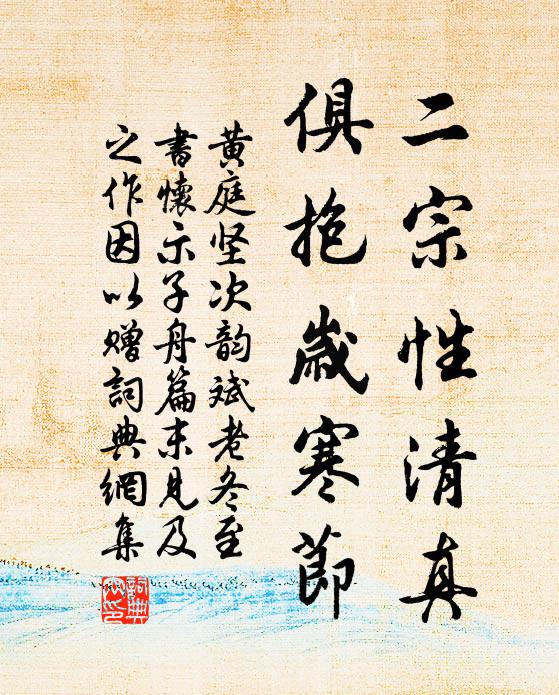 二宗性清真
俱抱歲寒節
黃庭坚次韵斌老冬至
書懷示子舟篇末見及
之作因以贈詞典網集